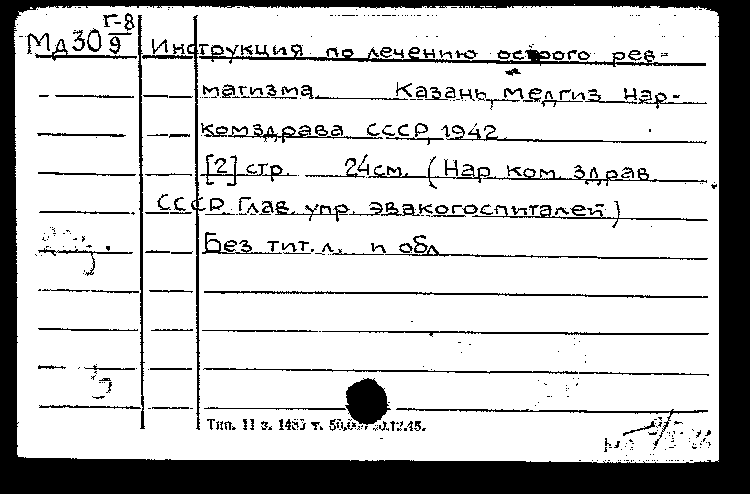 Г-8
Мд30 9 Инструкция по лечению острого рев-
матизма Казань, Медгиз Нар-
комздрава СССР, 1942
[2] стр. 24см. (Нар. ком. здрав.
СССР. Глав. упр. эвакогоспиталей)
Без тит. л. и обл
Тип. 11 з. т. 12.45.